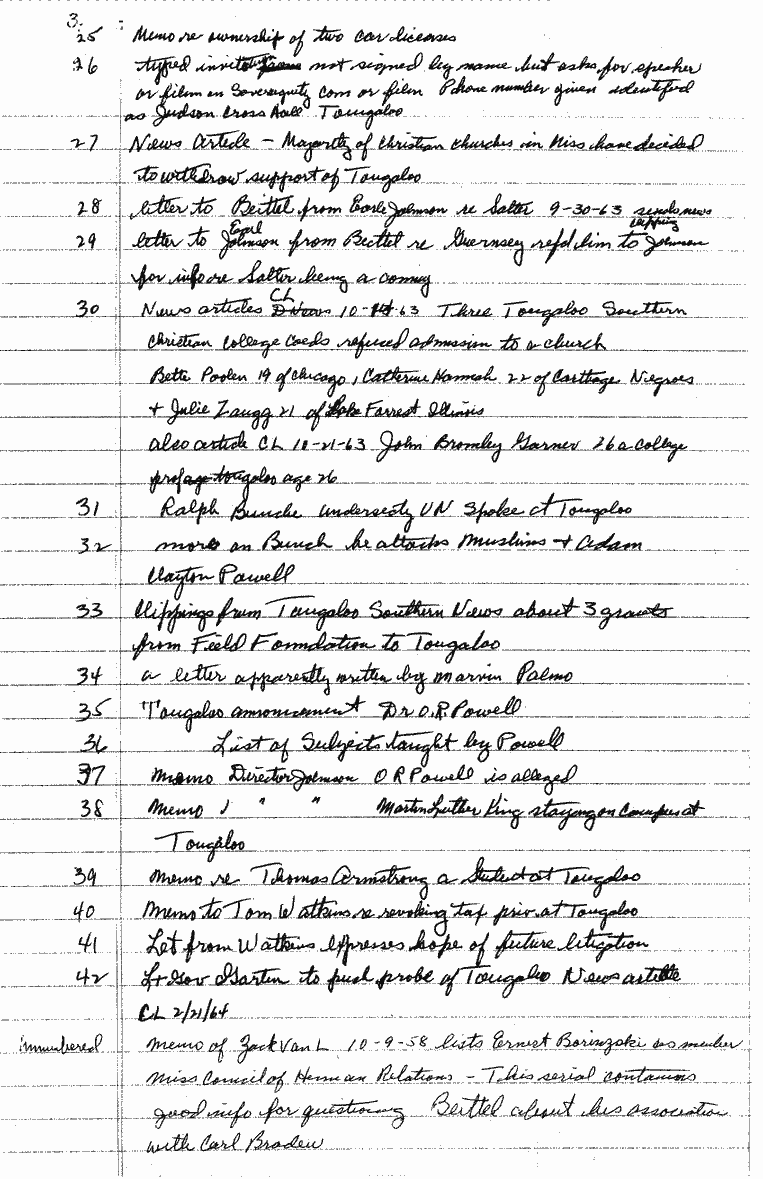 3.
25 Memo re ownership of two car licenses
26 typed invitation not signed by name but asks for speaker
or film on Sovereignty Com or film Phone number given identified
as Judson Cross Hall Tougaloo
27 News Article - Majority of Christian churches in Miss have decided
to withdraw support of Tougaloo
28 letter to Beittel from Earle Johnson re Salter 9-30-63 sends news
clipping
29 letter to Earl Johnson from Beittel re Guernsey refd him to Johnson
for info re Salter being a commy
30 News articles CL D News 10-14-63 Three Tougaloo Southern
Christian College Coeds refused admission to a church
Bette Poolen 19 of Chicago, Catherine Hannah 22 of Carthage Negroes
+ Julie Zaugg 21 of Lake Forrest Illinois
also article CL 10-21-63 John Bromley Garner 26 a college
prof age Tougaloo age 26
31 Ralph Bunche undersecty UN spoke at Tougaloo
32 more on Bunch he attacks Muslims + Adam
Clayton Powell
33 Clippings from Tougaloo Southern News about 3 grants
from Field Foundation to Tougaloo
34 a letter apparently written by Marvin Palmo
35 Tougaloo announcement Dr O.R. Powell
36 List of Subjects taught by Powell
37 Memo Director Johnson O R Powell is alleged
38 Memo " " " Martin Luther King staying on campus at
Tougaloo
39 Memo re Thomas Armstrong a Student at Tougaloo
40 Memo to Tom Watkins re revoking tax priv. at Tougaloo
41 Let from Watkins expresses hope of future litigation
42 Lt Gov Gartin to push probe of Tougaloo News article
CL 2/21/64
unnumbered Memo of Zack Van L 10-9-58 lists Ernest Borinzski as member
Miss Council of Human Relations - This serial contains
good info for questioning Beittel about his association
with Carl Braden